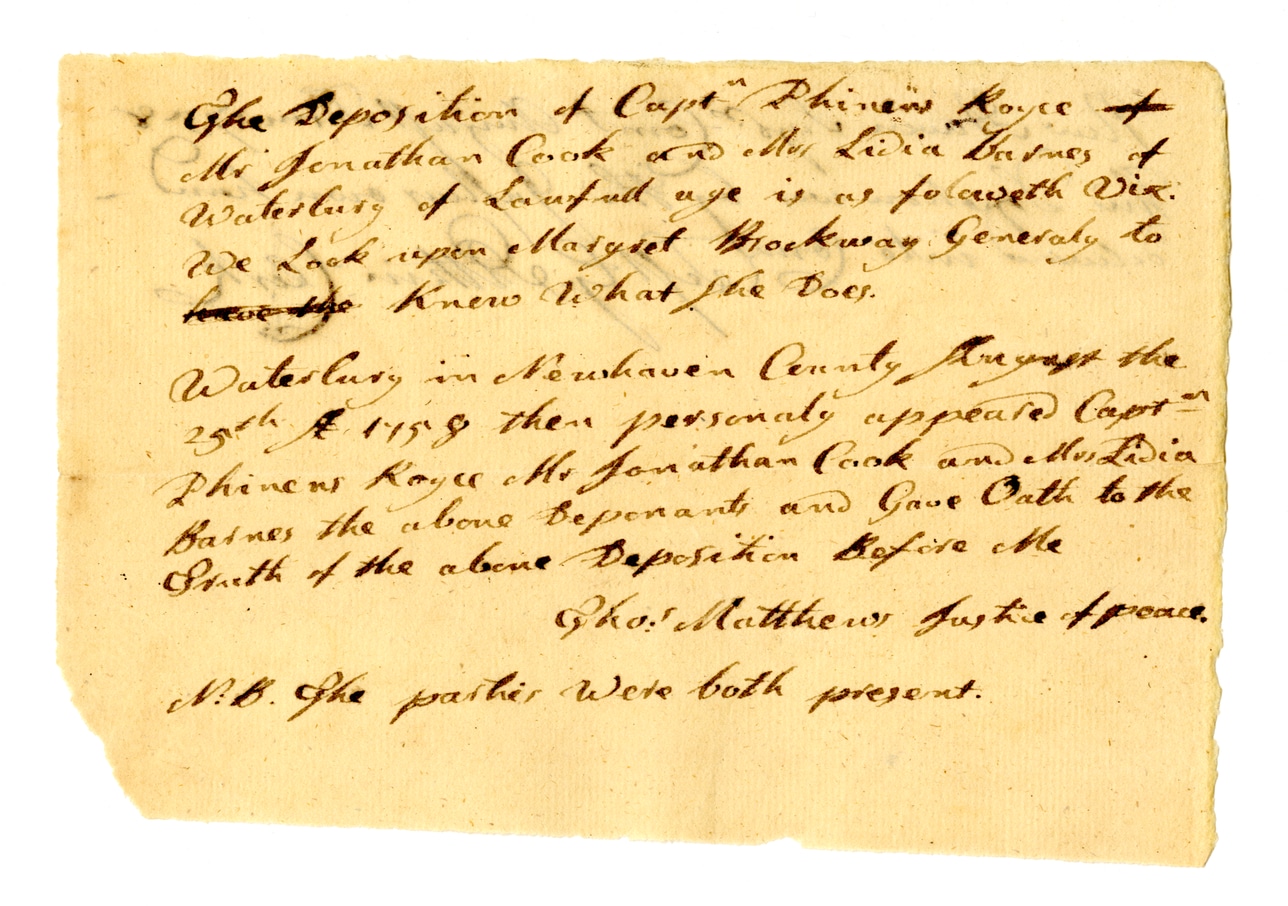 The Deposition of Captn Phineus Royce of
Mr Jonathan Cook and Mrs Lidia Barnes of
Waterbury of Lawfull age is as folaweth Viz.
We Look upon Margret Brockway Generaly to
have the Know What She Does.
Waterbury in Newhaven County August the
25th A 1758 then personaly appeared Captn
Phinens Royce Mr Jonathan Cook and Mrs Lidia
Barnes the above Deponants and Gave Oath to the
Truth of the above Deposition Before Me
Thos. Matthews Justice of peace.
N.B. The parties Were both present.